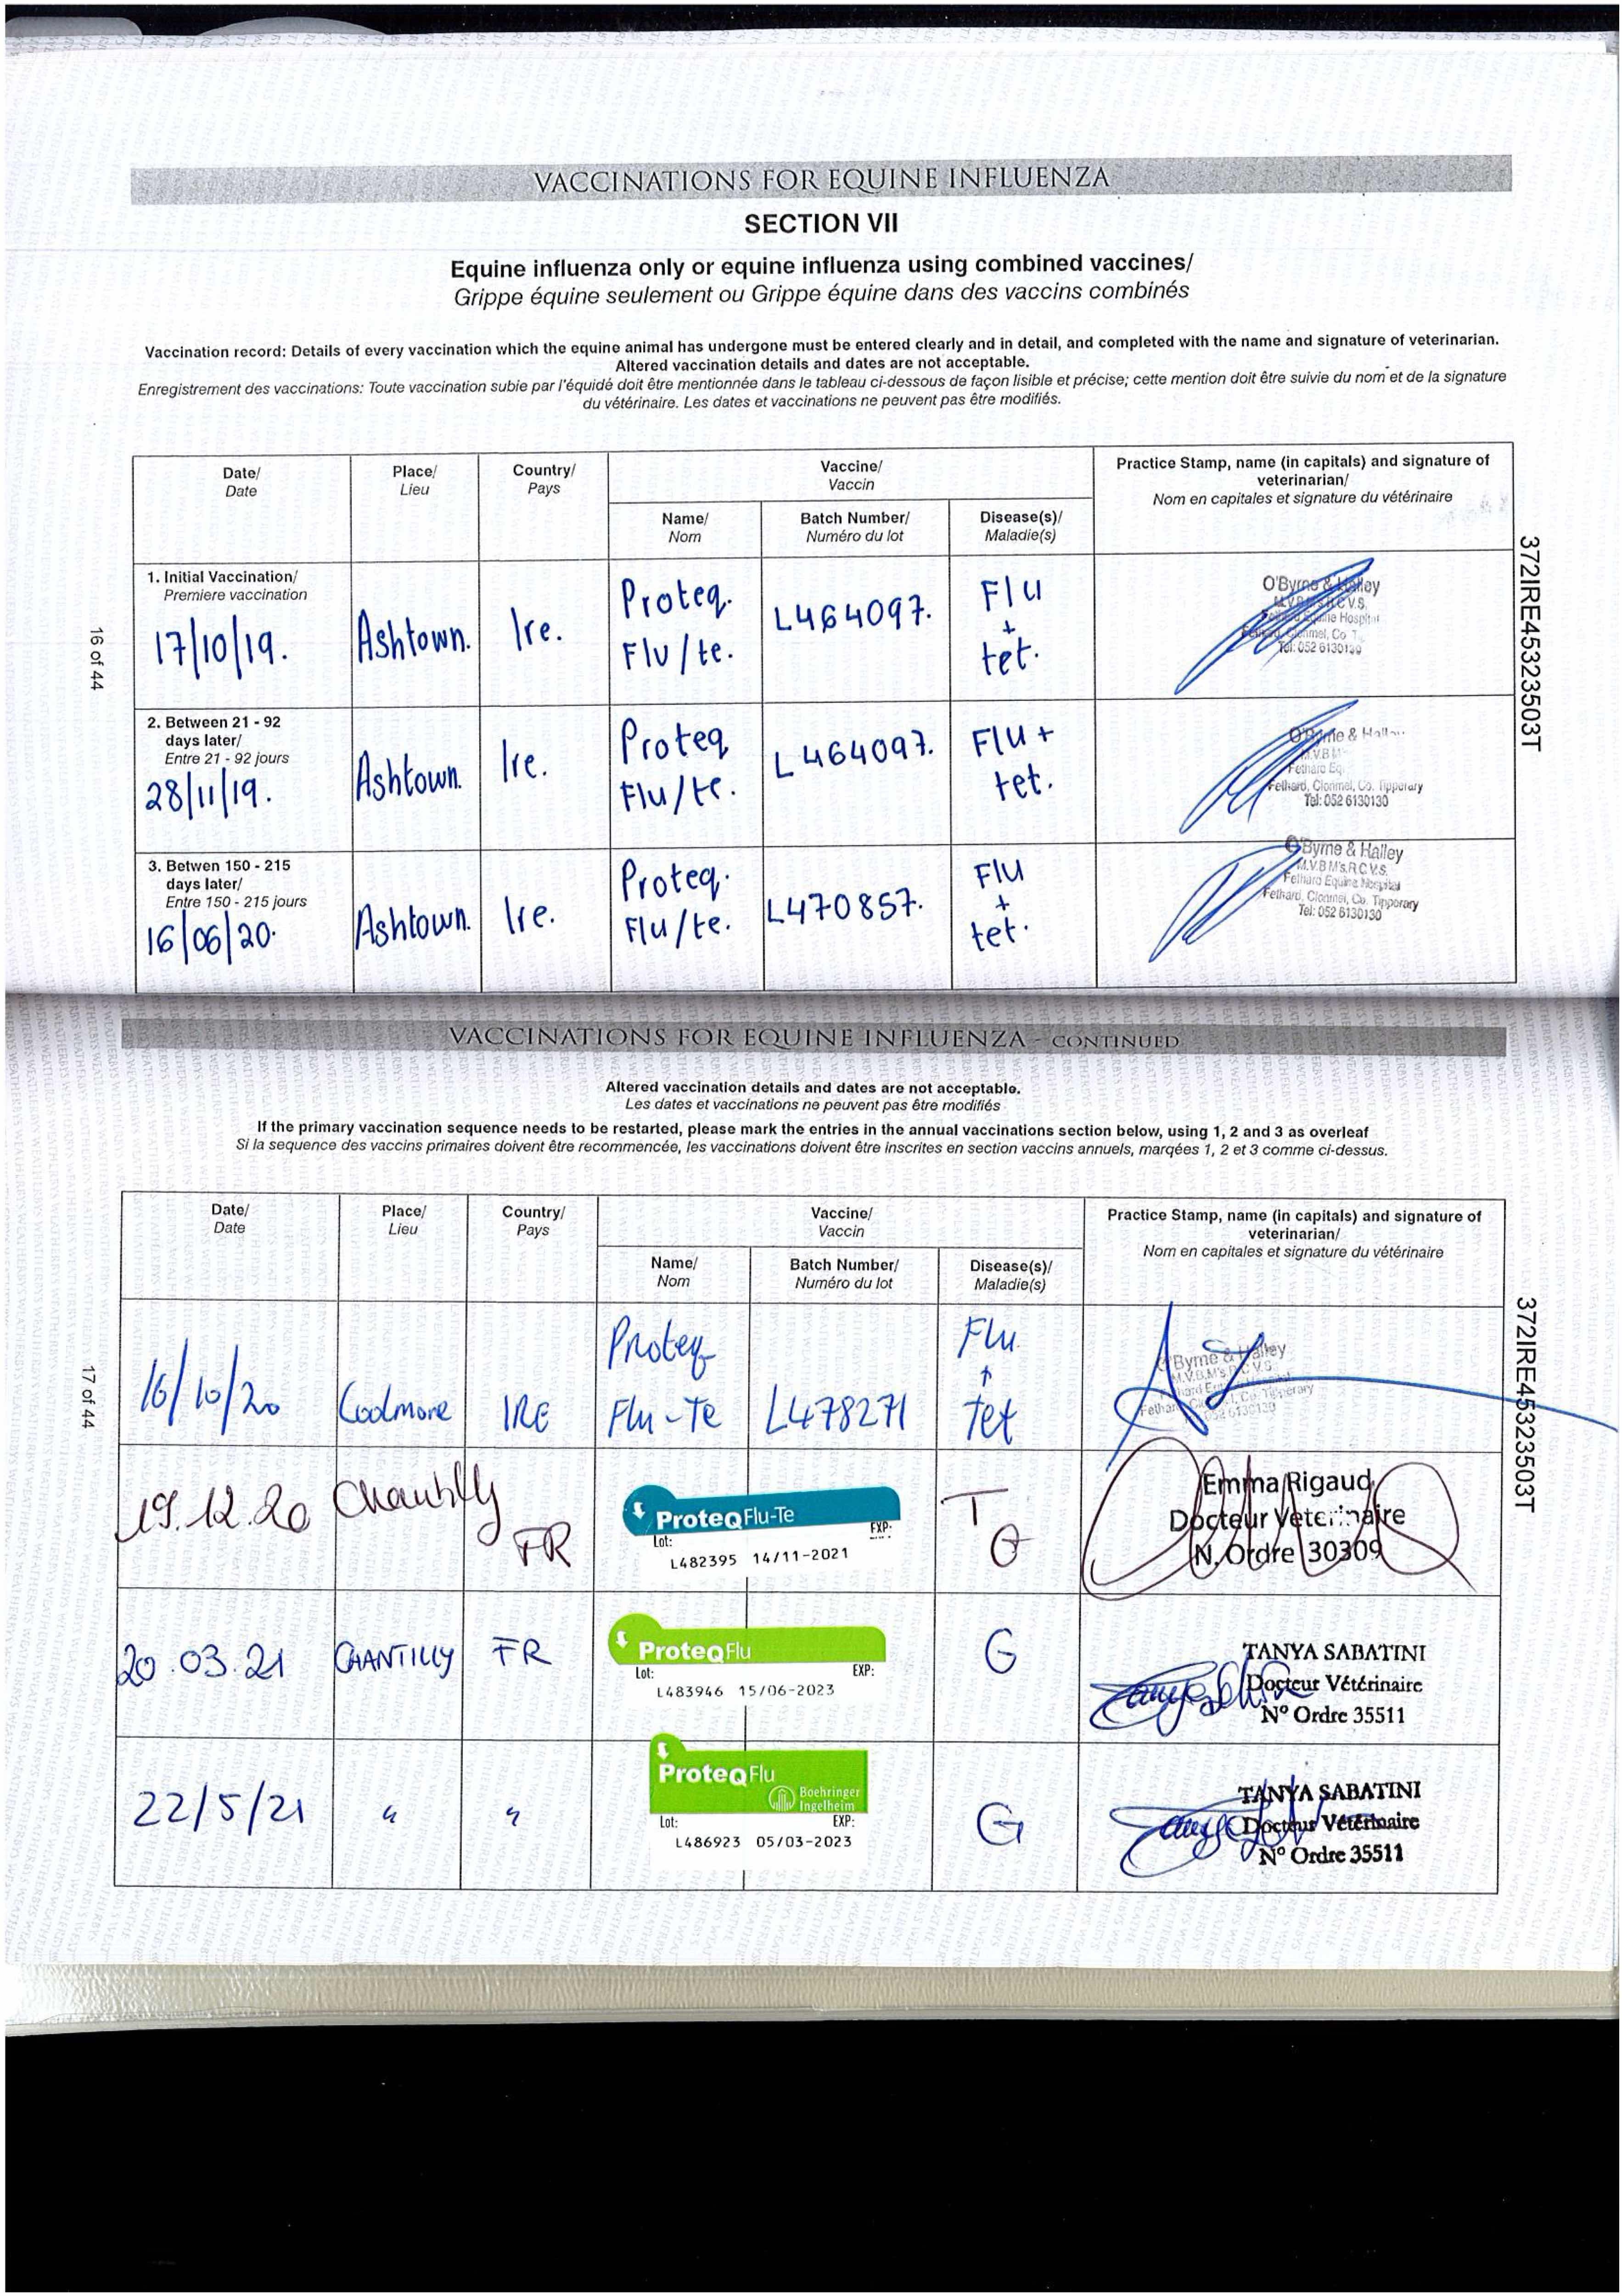 VACCINATIONS FOR EQUINE INFLUENZA
SECTION VII
Equine influenza only or equine influenza using combined vaccines/
Grippe équine seulement ou Grippe équine dans des vaccins combinés
Vaccination record: Details of every vaccination which the equine animal has undergone must be entered clearly and in detail, and completed with the name and signature of veterinarian.
Altered vaccination details and dates are not acceptable.
Enregistrement des vaccinations: Toute vaccination subie par l'équidé doit être mentionnée dans le tableau ci-dessous de façon lisible et précise; cette mention doit être suivie du nom et de la signature
du vétérinaire. Les dates et vaccinations ne peuvent pas être modifiés.
Date/
Date
Place/
Lieu
Country/
Pays
Vaccine/
Vaccin
Name/
Nom
Batch Number/
Numéro du lot
Disease(s)/
Maladie(s)
Practice Stamp, name (in capitals) and signature of
veterinarian/
Nom en capitales et signature du vétérinaire
1. Initial Vaccination/
Premiere vaccination
17/10/19.
Ashtown.
Ire.
Proteq.
Flu/te.
L464097.
Flu
+
tet.
O'Byrne & Halley
Tel: 052 6130130
2. Between 21 - 92
days later/
Entre 21 - 92 jours
28/11/19.
Ashtown.
Ire.
Proteq
Flu/te.
L464097.
Flu +
tet.
O'Byrne & Halley
Fethard, Clonmel, Co. Tipperary
Tel: 052 6130130
3. Betwen 150 - 215
days later/
Entre 150 - 215 jours
16/06/20.
Ashtown.
Ire.
Proteq.
Flu/te.
L470857.
Flu
+
tet.
O'Byrne & Halley
M.V.B M's.R.C.V.S.
Fethard Equine Hospital
Fethard, Clonmel, Co. Tipperary
Tel: 052 6130130
16 of 44
372IRE45323503T
VACCINATIONS FOR EQUINE INFLUENZA - CONTINUED
Altered vaccination details and dates are not acceptable.
Les dates et vaccinations ne peuvent pas être modifiés
If the primary vaccination sequence needs to be restarted, please mark the entries in the annual vaccinations section below, using 1, 2 and 3 as overleaf
Si la sequence des vaccins primaires doivent être recommencée, les vaccinations doivent être inscrites en section vaccins annuels, marqées 1, 2 et 3 comme ci-dessus.
Date/
Date
Place/
Lieu
Country/
Pays
Vaccine/
Vaccin
Name/
Nom
Batch Number/
Numéro du lot
Disease(s)/
Maladie(s)
Practice Stamp, name (in capitals) and signature of
veterinarian/
Nom en capitales et signature du vétérinaire
16/10/20
Coolmore
IRE
Proteq
Flu-Te
L478271
Flu
+
Tet
O'Byrne & Halley
19.12.20
Chantilly
FR
ProteqFlu-Te
Lot:
EXP:
L482395 14/11-2021
T
G
Emma Rigaud
Docteur Veterinaire
N. Ordre 30309
20.03.21
CHANTILLY
FR
ProteqFlu
Lot:
EXP:
L483946 15/06-2023
G
TANYA SABATINI
Docteur Vétérinaire
N° Ordre 35511
22/5/21
"
"
ProteqFlu
Boehringer
Ingelheim
Lot:
EXP:
L486923 05/03-2023
G
TANYA SABATINI
Docteur Vétérinaire
N° Ordre 35511
17 of 44
372IRE45323503T